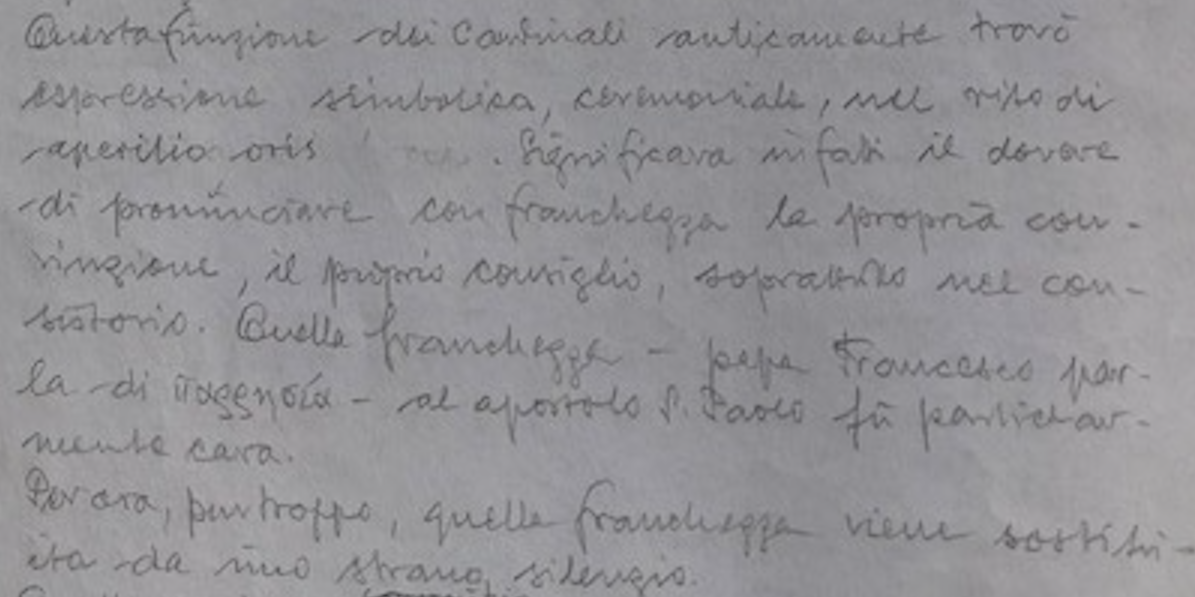 Questa funzione dei Cardinali anticamente trovò
espressione simbolica, ceremoniale, nel rito di
aperitio oris . Significava infatti il dovere
di pronunciare con franchezza la propria con-
vinzione, il proprio consiglio, soprattutto nel con-
sistorio. Quella franchezza - papa Francesco par-
la di παρρησία - al apostolo S. Paolo fù particolar-
mente cara.
Per ora, purtroppo, quella franchezza viene sostitu-
ita da uno strano silenzio.